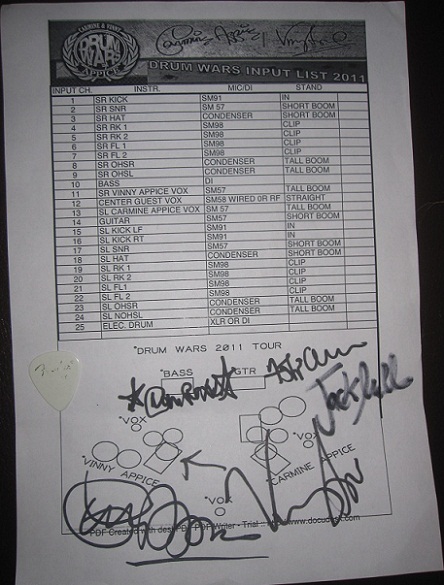 CARMINE & VINNY
DRUM
WARS
APPICE
DRUM WARS INPUT LIST 2011
INPUT CH. INSTR. MIC/DI STAND
1 SR KICK SM91 IN
2 SR SNR SM 57 SHORT BOOM
3 SR HAT CONDENSER SHORT BOOM
4 SR RK 1 SM98 CLIP
5 SR RK 2 SM98 CLIP
6 SR FL 1 SM98 CLIP
7 SR FL 2 SM98 CLIP
8 SR OHSR CONDENSER TALL BOOM
9 SR OHSL CONDENSER TALL BOOM
10 BASS DI
11 SR VINNY APPICE VOX SM57 TALL BOOM
12 CENTER GUEST VOX SM58 WIRED 0R RF STRAIGHT
13 SL CARMINE APPICE VOX SM 57 TALL BOOM
14 GUITAR SM57 SHORT BOOM
15 SL KICK LF SM91 IN
16 SL KICK RT SM91 IN
17 SL SNR SM57 SHORT BOOM
18 SL HAT CONDENSER SHORT BOOM
19 SL RK 1 SM98 CLIP
20 SL RK 2 SM98 CLIP
21 SL FL1 SM98 CLIP
22 SL FL 2 SM98 CLIP
23 SL OHSR CONDENSER TALL BOOM
24 SL NOHSL CONDENSER TALL BOOM
25 ELEC. DRUM XLR OR DI
*DRUM WARS 2011 TOUR
*BASS GTR
*VOX
*VOX
*VINNY APPICE
*CARMINE APPICE
*VOX
PDF Created with deskPDF PDF Writer - Trial ::